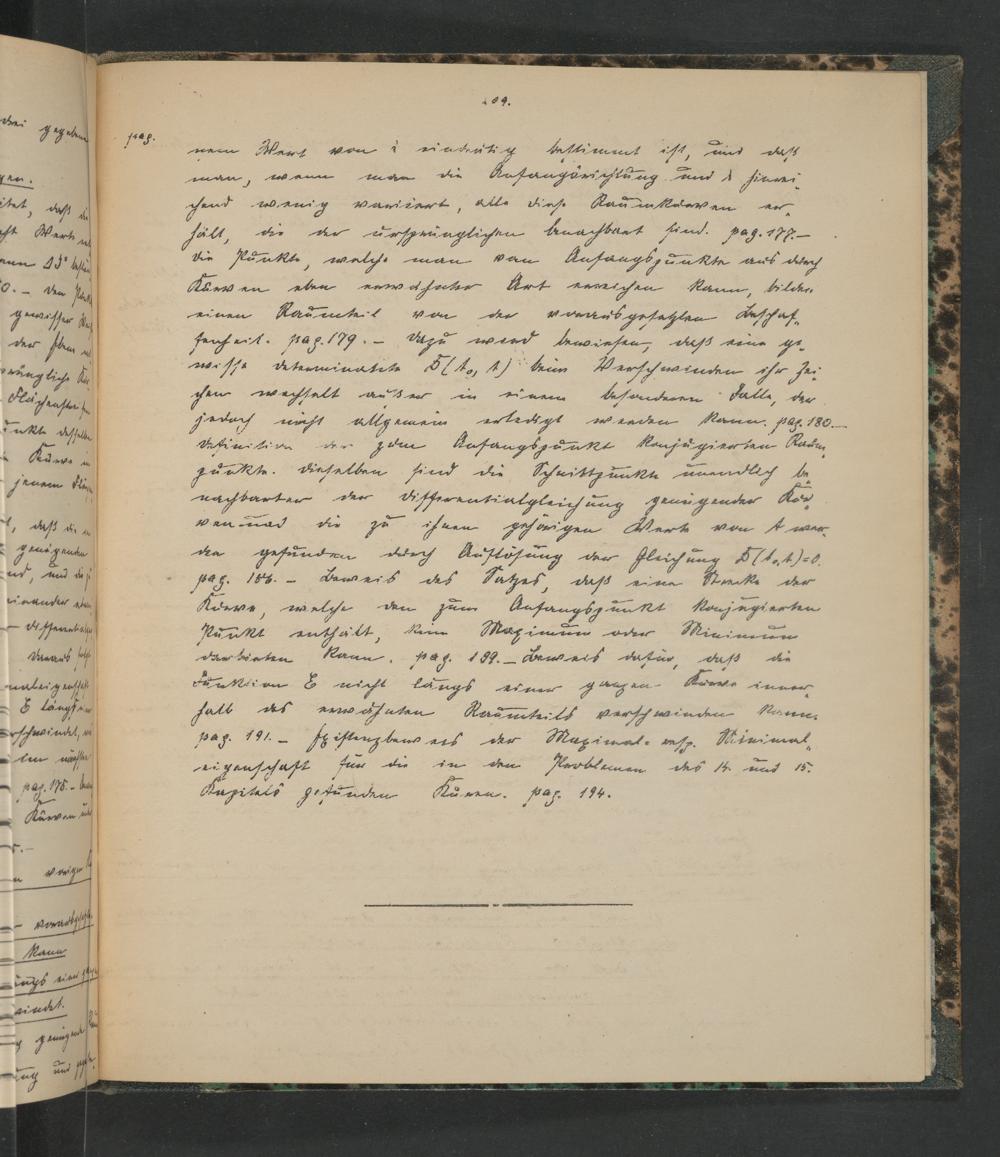 209.
pag.
nem Wert von λ eindeutig bestimmt ist, und daß
man, wenn man die Anfangsrichtung und λ hinrei-
chend wenig variiert, alle diese Raumkurven er-
hält, die der ursprünglichen benachbart sind. pag. 177. —
Die Punkte, welche man vom Anfangspunkte aus durch
Kurven eben erwähnter Art erreichen kann, bilden
einen Raumteil von der vorausgesetzten Beschaf-
fenheit. pag. 179. — Dazu wird bewiesen, daß eine ge-
wisse Determinante D(t₀, t) beim Verschwinden ihr Zei-
chen wechselt außer in einem besonderen Falle, der
jedoch nicht allgemein erledigt werden kann. pag. 180. —
Definition der zum Anfangspunkt konjugierten Raum-
punkte. Dieselben sind die Schnittpunkte unendlich be-
nachbarter der Differentialgleichung genügender Kur-
ven und die zu ihnen gehörigen Werte von t wer-
den gefunden durch Auflösung der Gleichung D(t₀, t) = 0.
pag. 186. — Beweis des Satzes, daß eine Strecke der
Kurve, welche den zum Anfangspunkt konjugierten
Punkt enthält, kein Maximum oder Minimum
darbieten kann. pag. 189. — Beweis dafür, daß die
Funktion E nicht längs einer ganzen Kurve inner-
halb des erwähnten Raumteils verschwinden kann.
pag. 191. — Existenzbeweis der Maximal- resp. Minimal-
eigenschaft für die in den Problemen des 14. und 15.
Kapitels gefunden Kurven. pag. 194.